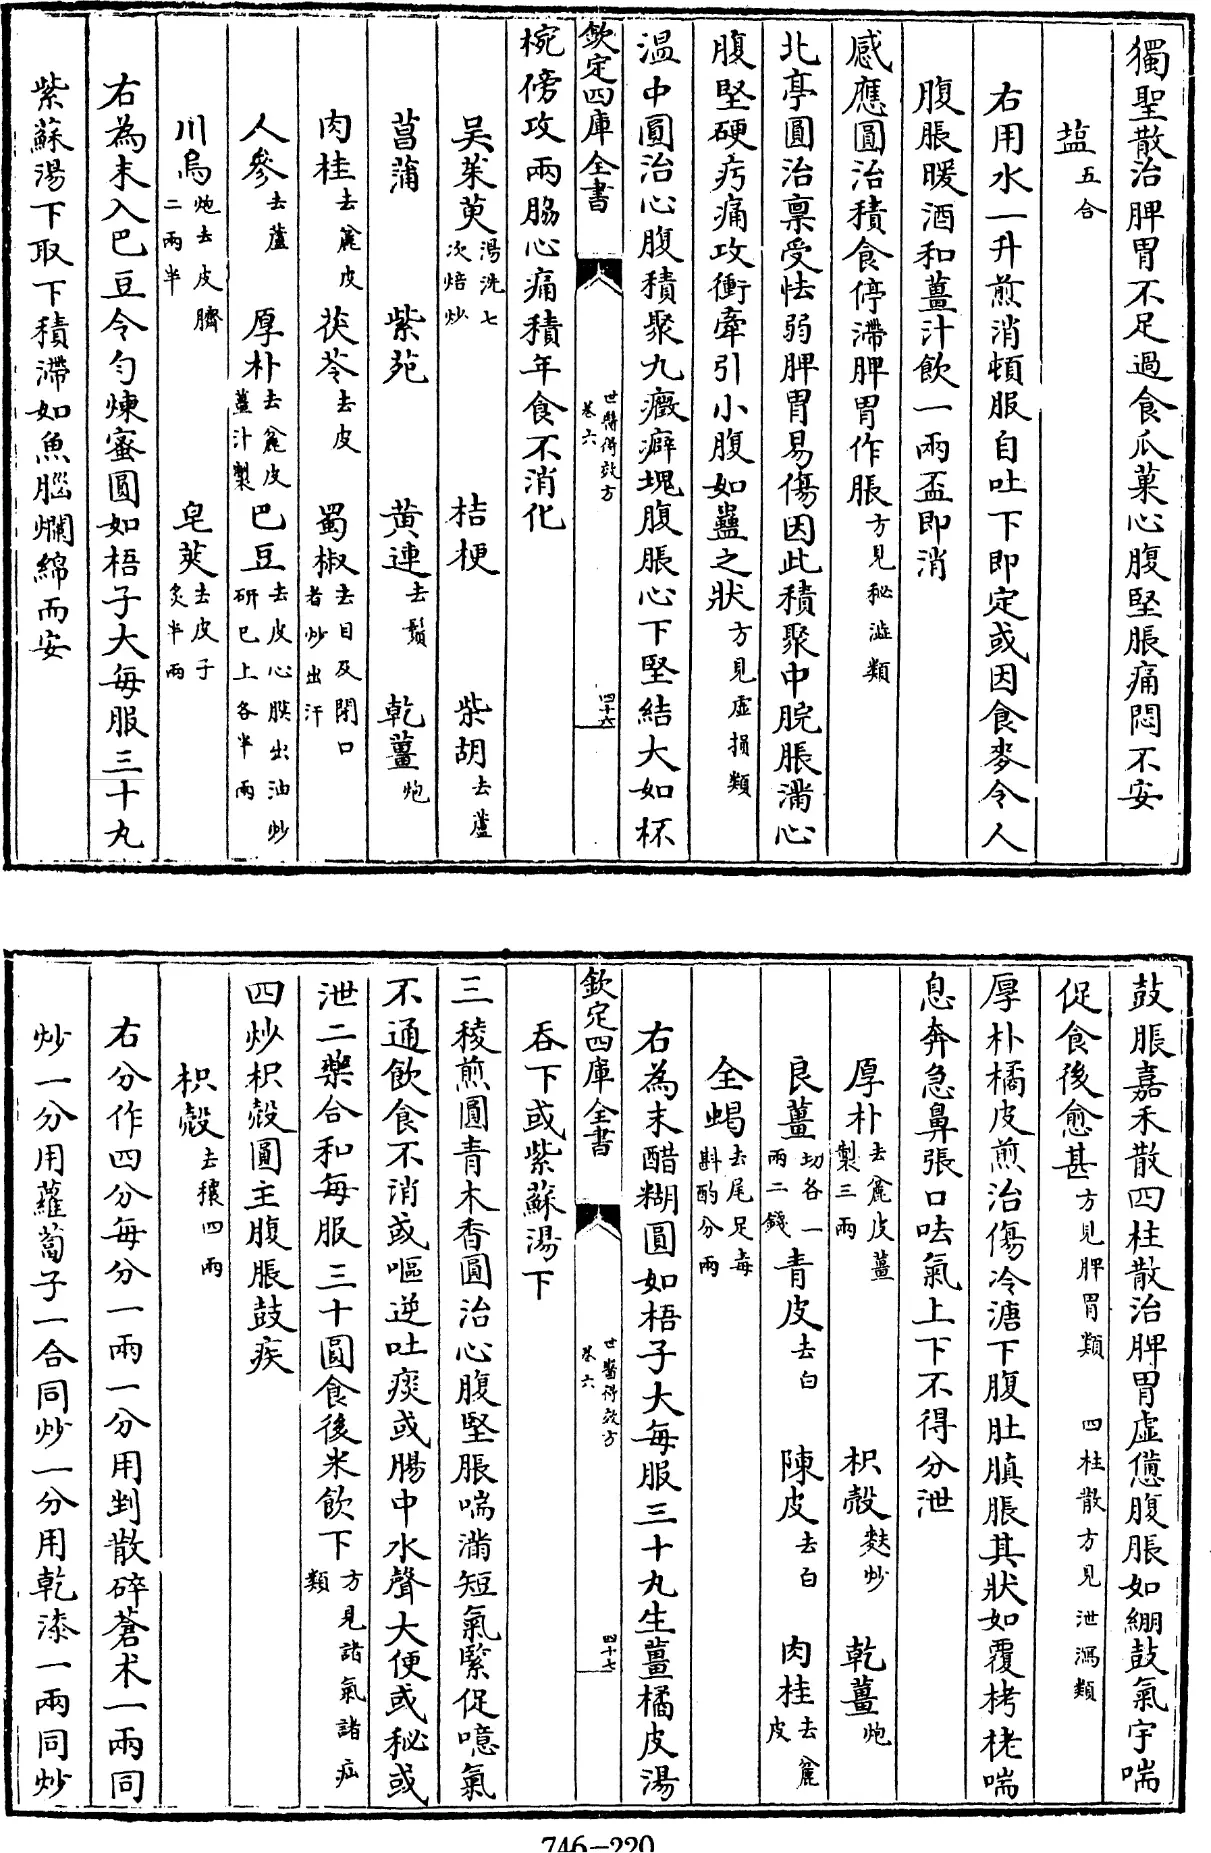 獨聖散治脾胃不足過食瓜菓心腹堅脹痛悶不安
塩五合
右用水一升煎消頓服自吐下即定或因食麥令人
腹脹暖酒和薑汁飲一兩盃即消
感應圓治積食停滯脾胃作脹方見秘澁類
北亭圓治禀受怯弱脾胃易傷因此積聚中脘脹滿心
腹堅硬㽲痛攻衝牽引小腹如蠱之狀方見虛損類
温中圓治心腹積聚九癥癖塊腹脹心下堅結大如杯
欽定四庫全書 世醫得效方卷六 四十六
椀傍攻兩脇心痛積年食不消化
吴茱萸湯洗七次焙炒 桔梗 柴胡去蘆
菖蒲 紫菀 黄連去鬚 乾薑炮
肉桂去麄皮 茯苓去皮 蜀椒去目及閉口者炒出汗
人參去蘆 厚朴去麄皮薑汁製 巴豆去皮心膜出油炒研巳上各半兩
川烏炮去皮臍二兩半 皂莢去皮子炙半兩
右為末入巴豆令勻煉蜜圓如梧子大每服三十丸
紫蘇湯下取下積滯如魚腦爛綿而安
鼓脹嘉禾散四柱散治脾胃虛憊腹脹如綳鼓氣宇喘
促食後愈甚方見脾胃類 四柱散方見泄瀉類
厚朴橘皮煎治傷冷溏下腹肚䐜脹其狀如覆栲栳喘
息奔急鼻張口呿氣上下不得分泄
厚朴去麄皮薑製三兩 枳殼麩炒 乾薑炮
良薑切各一兩二錢 青皮去白 陳皮去白 肉桂去麄皮
全蝎去尾足毒斟酌分兩
右為末醋糊圓如梧子大每服三十丸生薑橘皮湯
欽定四庫全書 世醫得效方卷六 四十七
吞下或紫蘇湯下
三稜煎圓青木香圓治心腹堅脹喘滿短氣緊促噫氣
不通飲食不消或嘔逆吐痰或腸中水聲大便或秘或
泄二藥合和每服三十圓食後米飲下方見諸氣諸疝類
四炒枳殼圓主腹脹鼓疾
枳殼去穰四兩
右分作四分每分一兩一分用剉散碎蒼术一兩同
炒一分用蘿蔔子一合同炒一分用乾漆一兩同炒
746-220